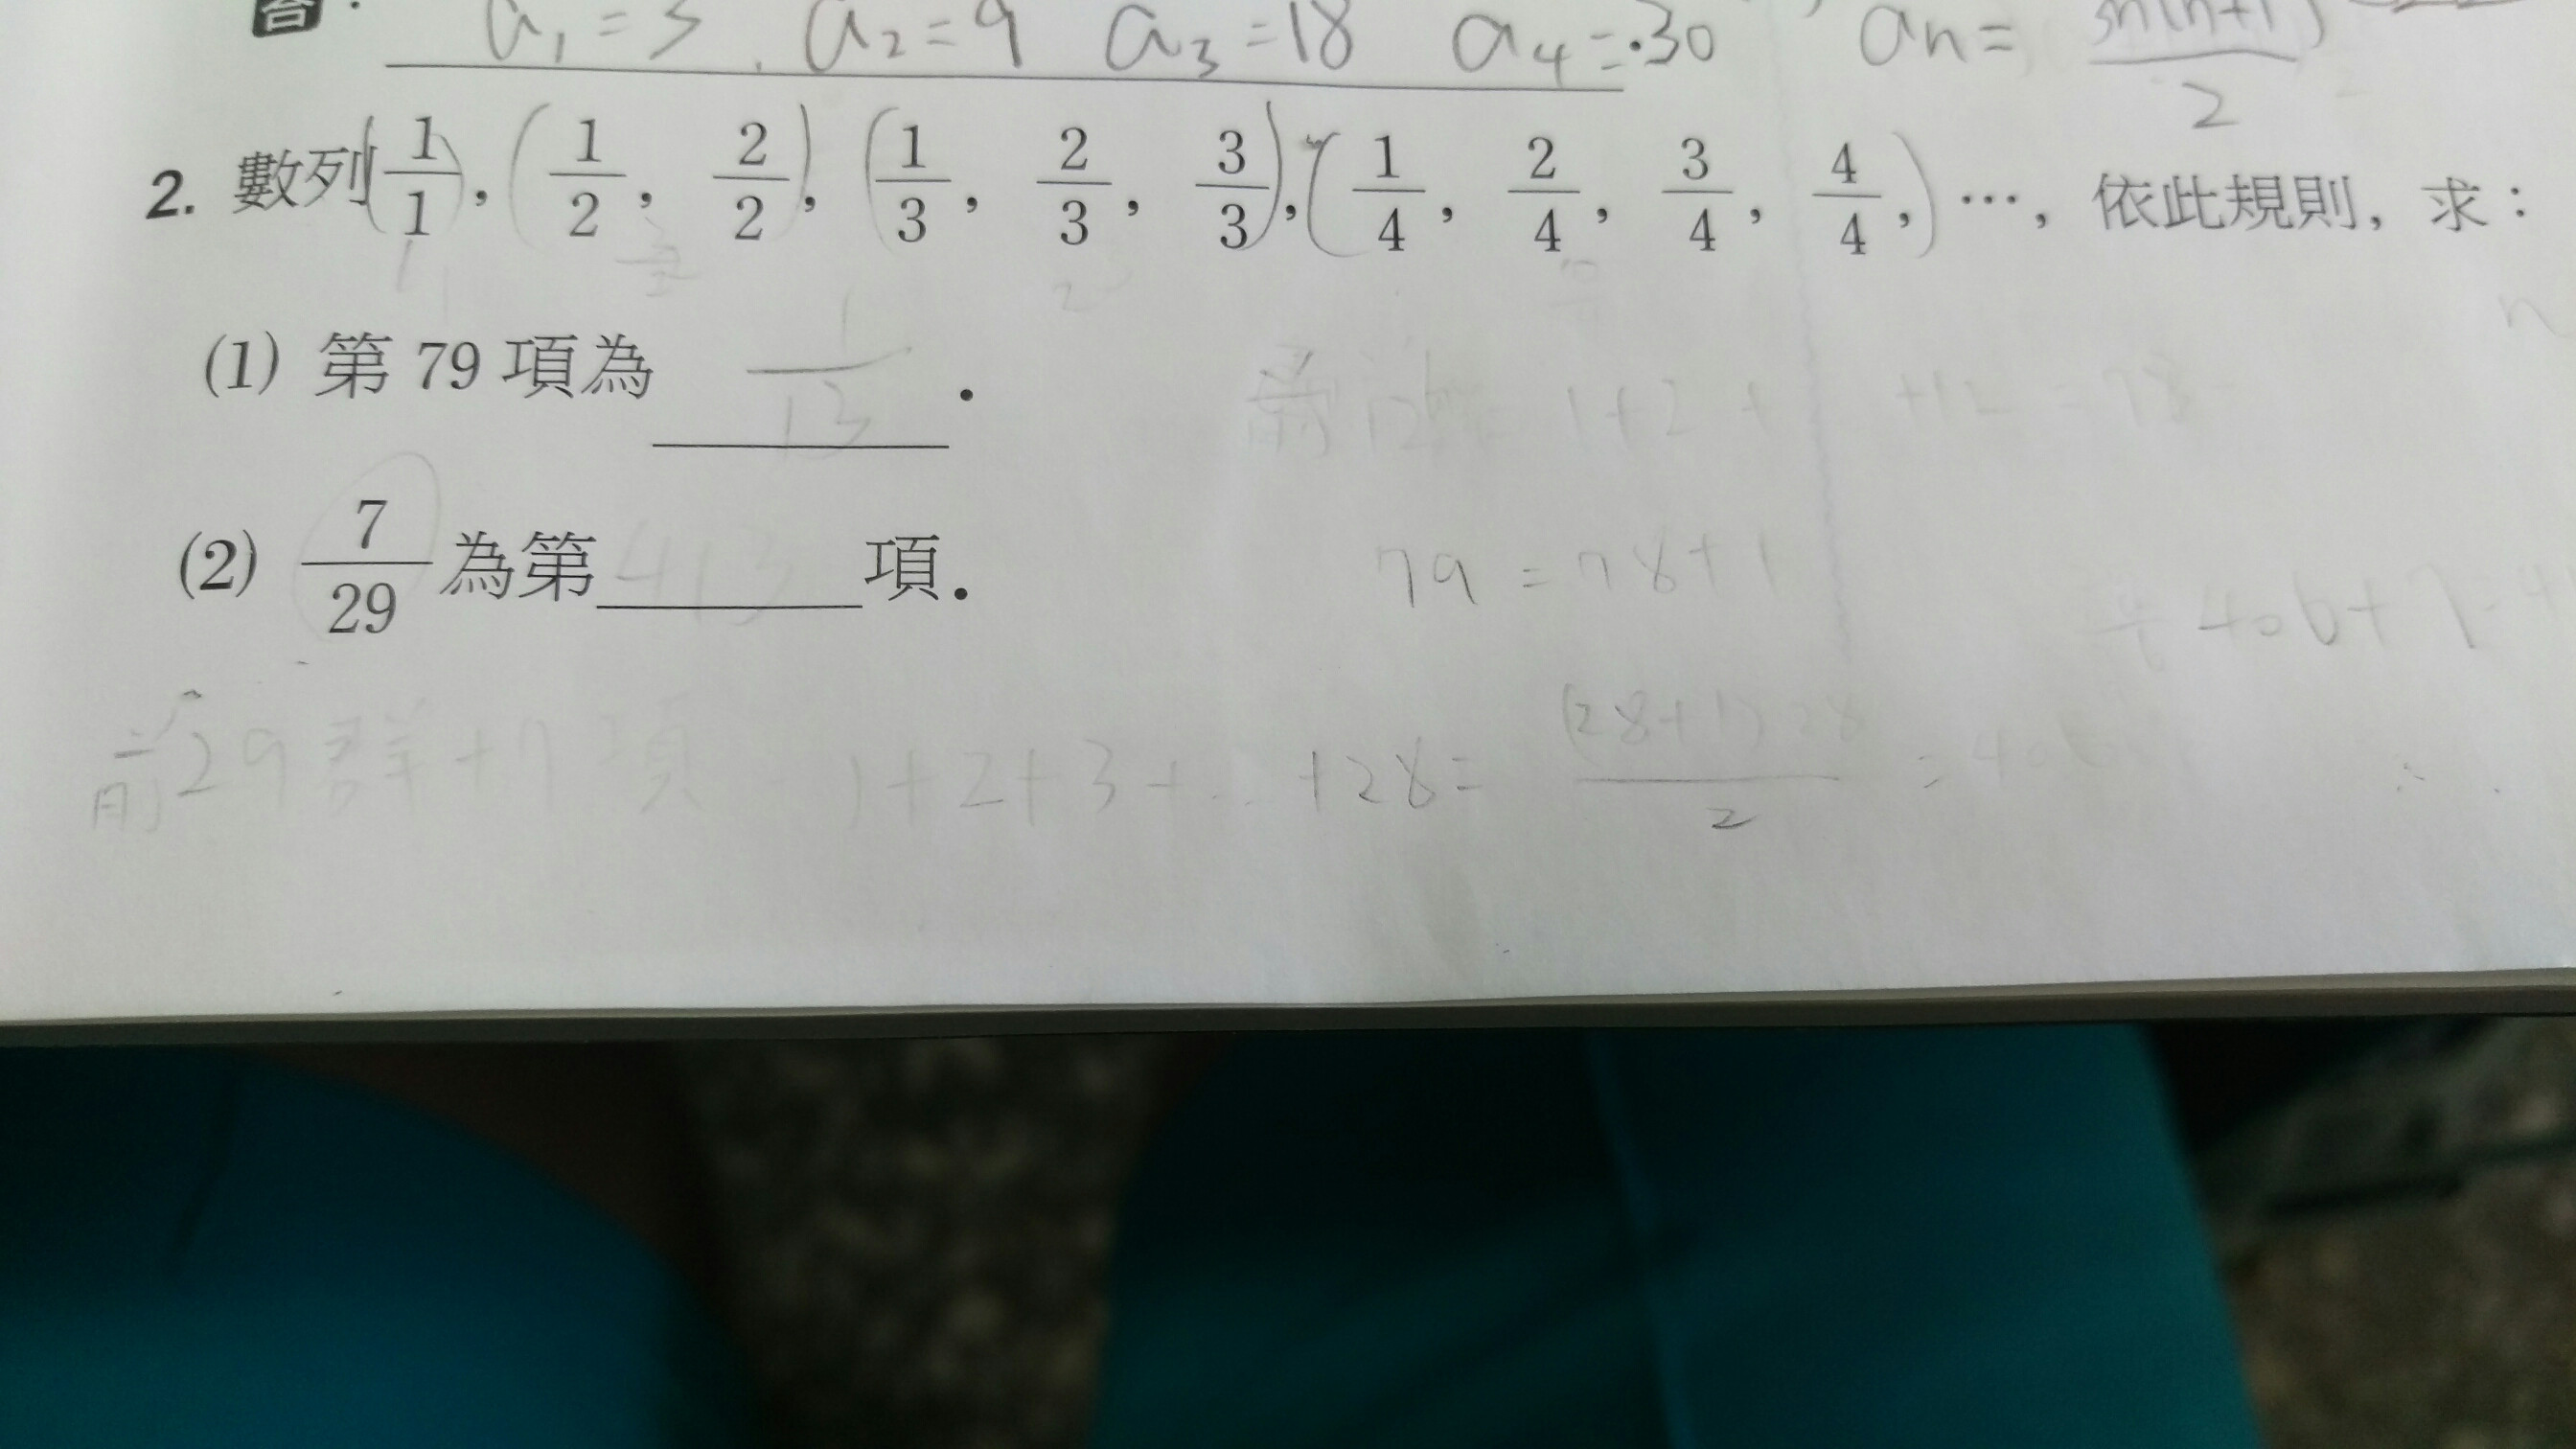 答：a₁=3, a₂=9 a₃=18 a₄=30 aₙ= 3n(n+1)/2
2. 數列(1/1), (1/2, 2/2), (1/3, 2/3, 3/3), (1/4, 2/4, 3/4, 4/4,) ⋯, 依此規則, 求：
(1) 第 79 項為 1/13 .
1+2+ +12 = 78
(2) 7/29 為第 413 項.
79 = 78+1
406+7=41
前29群+7項 1+2+3+...+28= (28+1)28/2 = 406